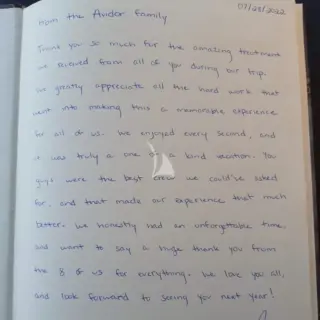 from the Andor Family
07/23/2022
Thank you so much for the amazing treatment
we received from all of you during our trip.
We greatly appreciate all the hard work that
went into making this a memorable experience
for all of us. We enjoyed every second, and
it was truly a one of a kind vacation. You
guys were the best crew we could've asked
for, and that made our experience that much
better. We honestly had an unforgettable time,
and want to say a huge thank you from
the 8 of us for everything. We love you all,
and look forward to seeing you next year!